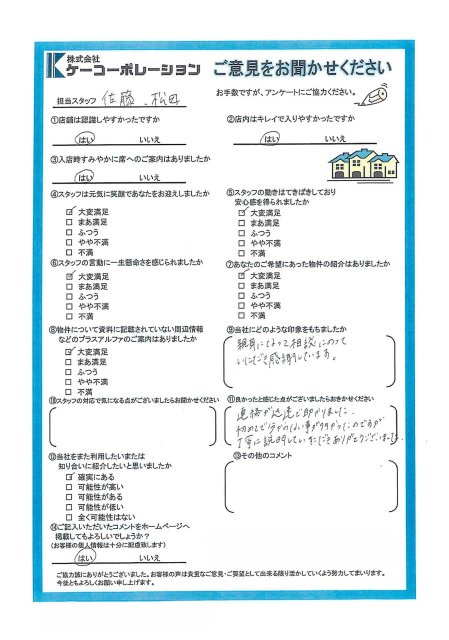 株式会社
ケーコーポレーション
ご意見をお聞かせください
担当スタッフ 佐藤、松田
お手数ですが、アンケートにご協力ください。
①店舗は認識しやすかったですか
はい いいえ
②店内はキレイで入りやすかったですか
はい いいえ
③入店時すみやかに席へのご案内はありましたか
はい いいえ
④スタッフは元気に笑顔であなたをお迎えしましたか
☑ 大変満足
□ まあ満足
□ ふつう
□ やや不満
□ 不満
⑤スタッフの動きはてきぱきしており
安心感を得られましたか
☑ 大変満足
□ まあ満足
□ ふつう
□ やや不満
□ 不満
⑥スタッフの言動に一生懸命さを感じられましたか
☑ 大変満足
□ まあ満足
□ ふつう
□ やや不満
□ 不満
⑦あなたのご希望にあった物件の紹介はありましたか
☑ 大変満足
□ まあ満足
□ ふつう
□ やや不満
□ 不満
⑧物件について資料に記載されていない周辺情報
などのプラスアルファのご案内はありましたか
☑ 大変満足
□ まあ満足
□ ふつう
□ やや不満
□ 不満
⑨当社にどのような印象をもちましたか
親身になって相談にのって
いただき感謝しています。
⑩スタッフの対応で気になる点がございましたらお聞かせください
⑪良かったと感じた点がございましたらおきかせください
連絡が迅速で助かりました。
初めてで分からない事が多かったのですが
丁寧に説明していただきありがとうございました。
⑫当社をまた利用したいまたは
知り合いに紹介したいと思いましたか
☑ 確実にある
□ 可能性が高い
□ 可能性がある
□ 可能性が低い
□ 全く可能性はない
⑬その他のコメント
⑭ご記入いただいたコメントをホームページへ
掲載してもよろしいでしょうか？
（お客様の個人情報は十分に配慮致します）
はい いいえ
ご協力誠にありがとうございました。お客様の声は貴重なご意見・ご要望として出来る限り活かしていくよう努力してまいります。
今後ともよろしくお願い申し上げます。